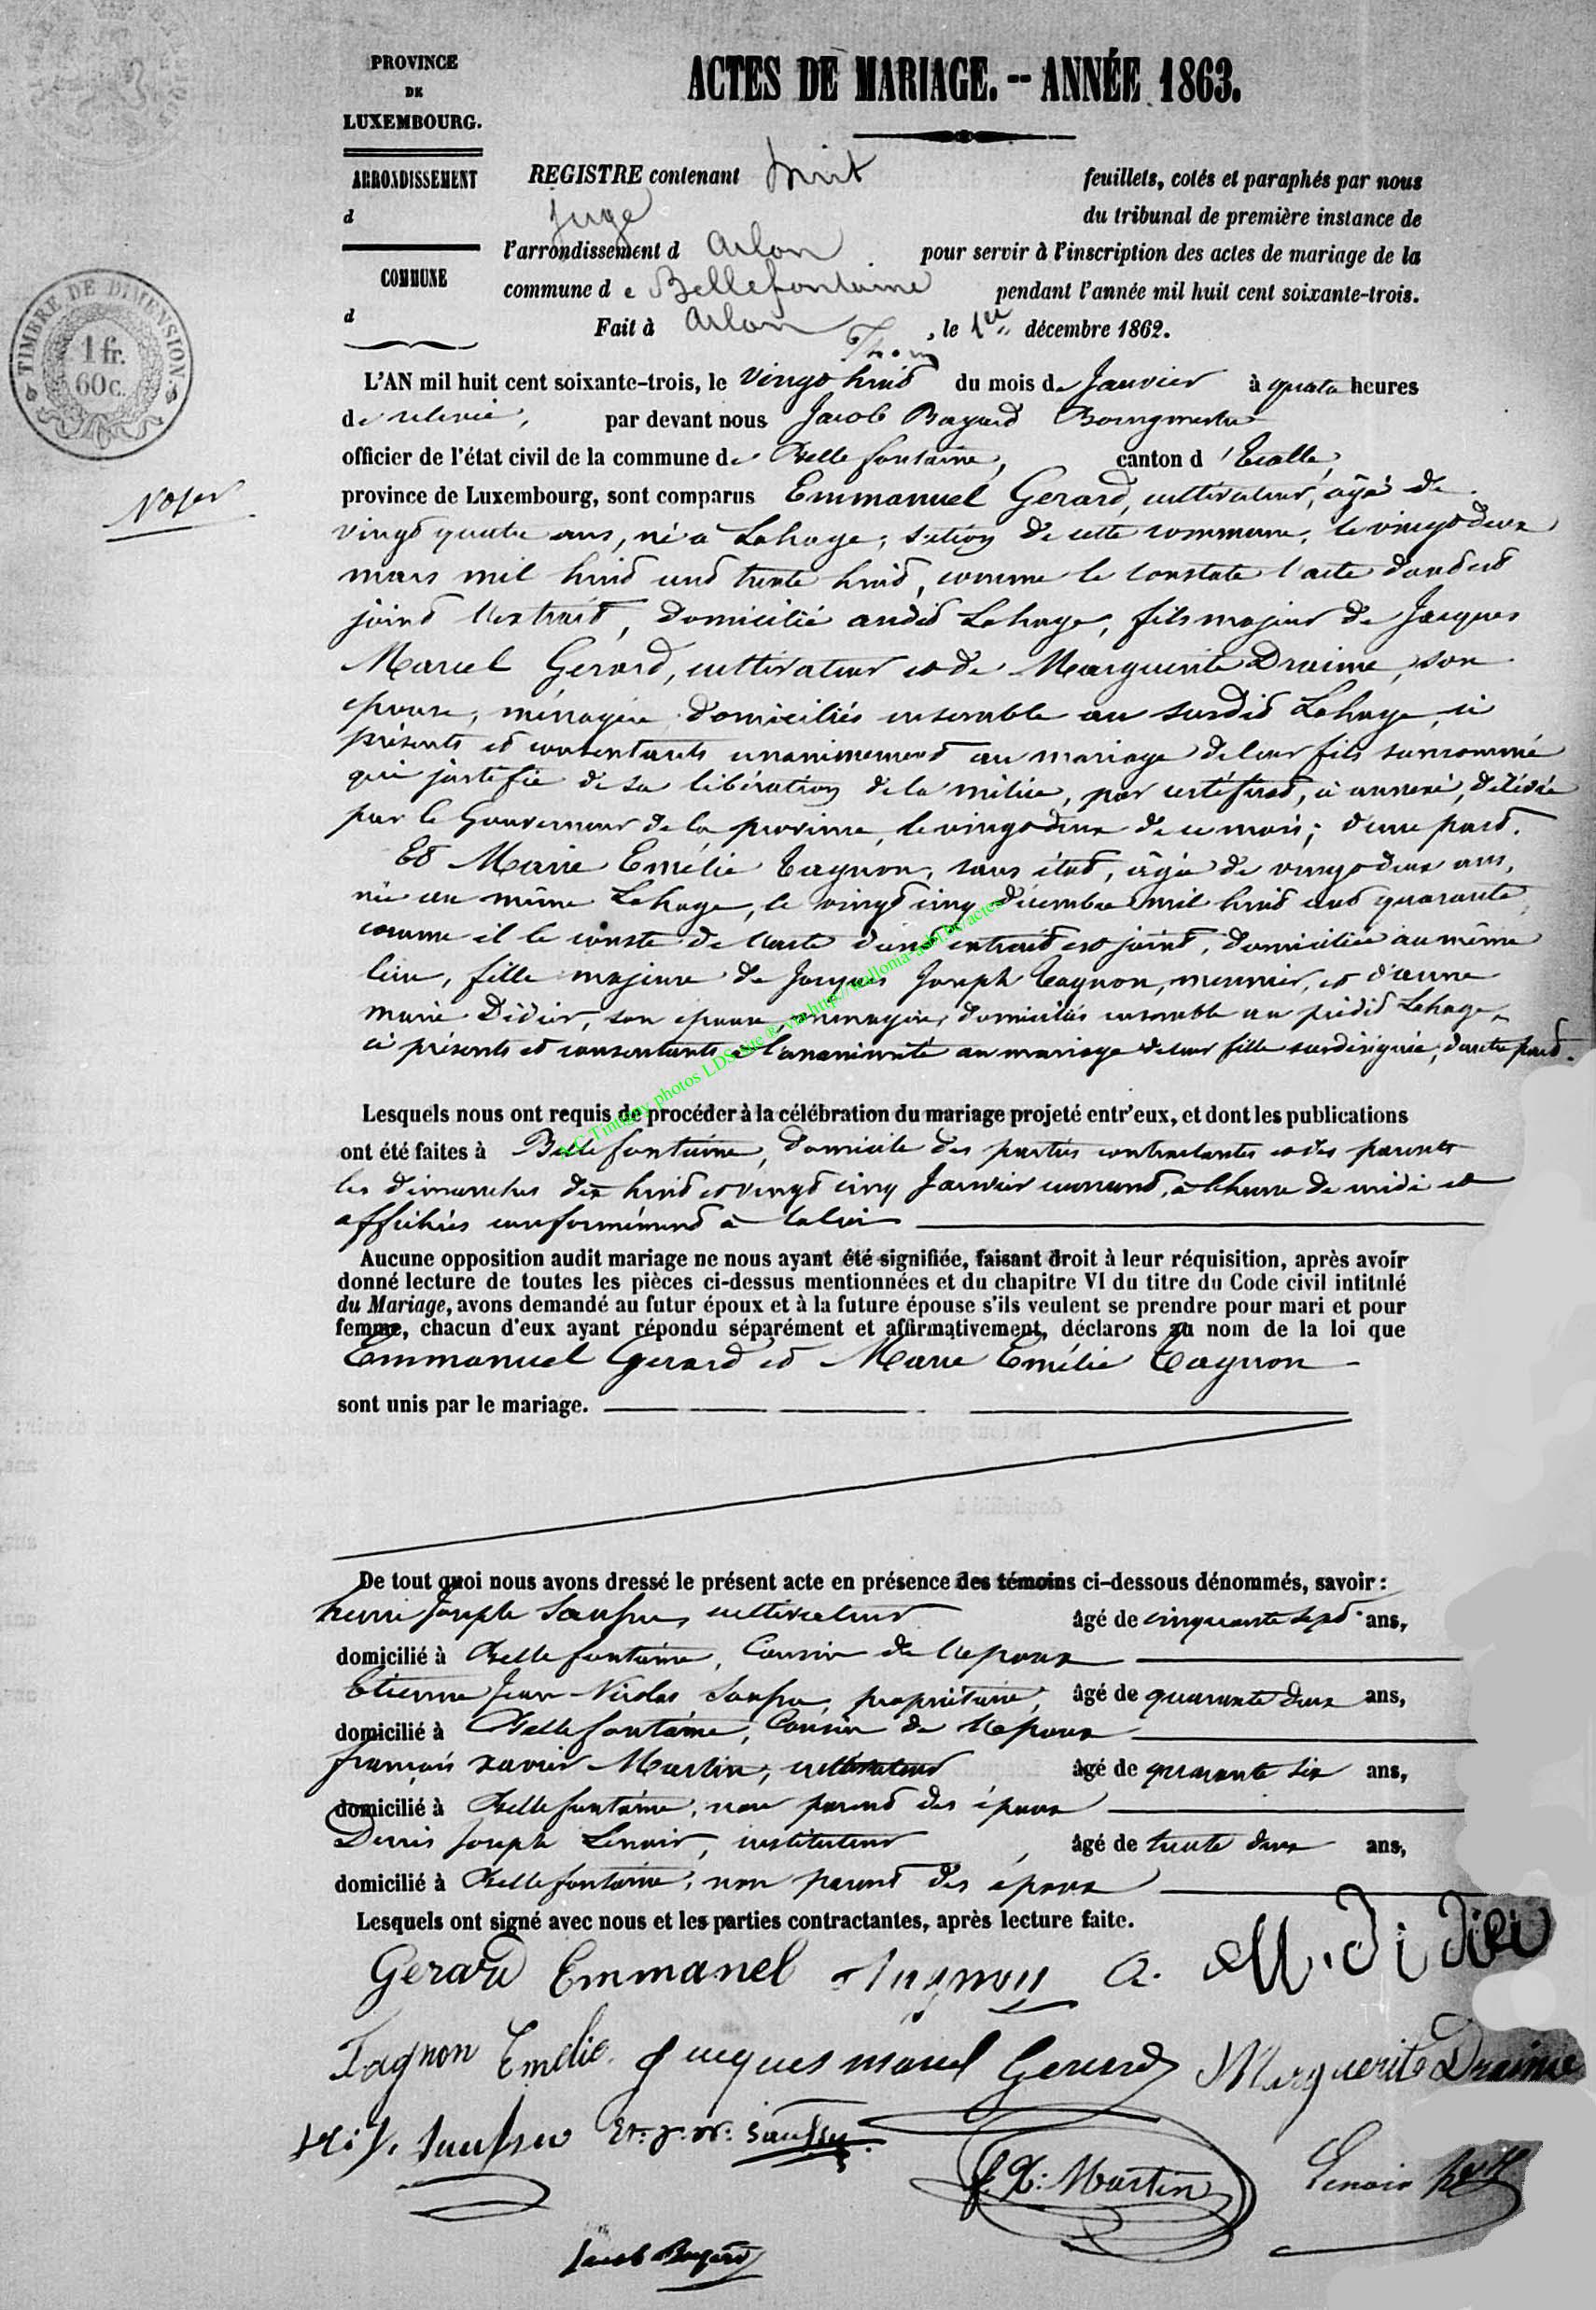 PROVINCE
DE
LUXEMBOURG.
ACTES DE MARIAGE. -- ANNÉE 1863.
ARRONDISSEMENT
d
COMMUNE
d
TIMBRE DE DIMENSION
1 fr.
60 c.
REGISTRE contenant huit feuillets, cotés et paraphés par nous
juge du tribunal de première instance de
l'arrondissement d Arlon pour servir à l'inscription des actes de mariage de la
commune de Bellefontaine pendant l'année mil huit cent soixante-trois.
Fait à Arlon, le 1er décembre 1862.
L'AN mil huit cent soixante-trois, le vingt huit du mois de Janvier à quatre heures
de relevée, par devant nous Jacob Bayard Bourgmestre
officier de l'état civil de la commune de Bellefontaine, canton d'Etalle,
province de Luxembourg, sont comparus Emmanuel Gerard, cultivateur, âgé de
vingt quatre ans, né à Lahage, section de cette commune, le vingt deux
mars mil huit cent trente huit, comme le constate l'acte dont est
joint l'extrait, domicilié audit Lahage, fils majeur de Jacques
Marcel Gerard, cultivateur et de Marguerite Draime, son
épouse, ménagère domiciliés ensemble au susdit Lahage, ici
présents et consentants unanimement au mariage de leur fils surnommé
qui justifie de sa libération de la milice, par certificat, ci annexé, délivré
par le Gouverneur de la province, le vingt deux de ce mois; d'une part.
Et Marie Emélie Tagnon, sans état, âgée de vingt deux ans,
née au même Lahage, le vingt cinq décembre mil huit cent quarante
comme il le conste de l'acte dont extrait est joint, domiciliée au même
lieu, fille majeure de Jacques Joseph Tagnon, meunier, et d'anne
marie Didier, son épouse ménagère, domiciliés ensemble au prédit Lahage,
ci présents et consentants à l'unanimité au mariage de leur fille susdésignée, d'autre part.
Lesquels nous ont requis de procéder à la célébration du mariage projeté entr'eux, et dont les publications
ont été faites à Bellefontaine, domicile des parties contractantes et des parents
les dimanches dix huit et vingt cinq Janvier courant, à l'heure de midi et
affichées conformément à la loi
Aucune opposition audit mariage ne nous ayant été signifiée, faisant droit à leur réquisition, après avoir
donné lecture de toutes les pièces ci-dessus mentionnées et du chapitre VI du titre du Code civil intitulé
du Mariage, avons demandé au futur époux et à la future épouse s'ils veulent se prendre pour mari et pour
femme, chacun d'eux ayant répondu séparément et affirmativement, déclarons au nom de la loi que
Emmanuel Gerard et Marie Emélie Tagnon
sont unis par le mariage.
De tout quoi nous avons dressé le présent acte en présence des témoins ci-dessous dénommés, savoir :
henri Joseph Saufsu, cultivateur âgé de cinquante sept ans,
domicilié à Bellefontaine, Cousin de l'époux
Etienne Jean Nicolas Saufsu, propriétaire, âgé de quarante deux ans,
domicilié à Bellefontaine, Cousin de l'époux
françois xavier Martin, cultivateur âgé de quarante six ans,
domicilié à Bellefontaine, non parent des époux
Denis Joseph Lenoir, instituteur, âgé de trente deux ans,
domicilié à Bellefontaine, non parent des époux
Lesquels ont signé avec nous et les parties contractantes, après lecture faite.
Gerard Emmanel Tagnon A. M. Didier
Tagnon Emelie. Jacques marcel Gerard Marguerite Draime
H: J. Saufsu Et. J. N: Saufsu.
f. X: Martin Lenoir
Jacob Bayard